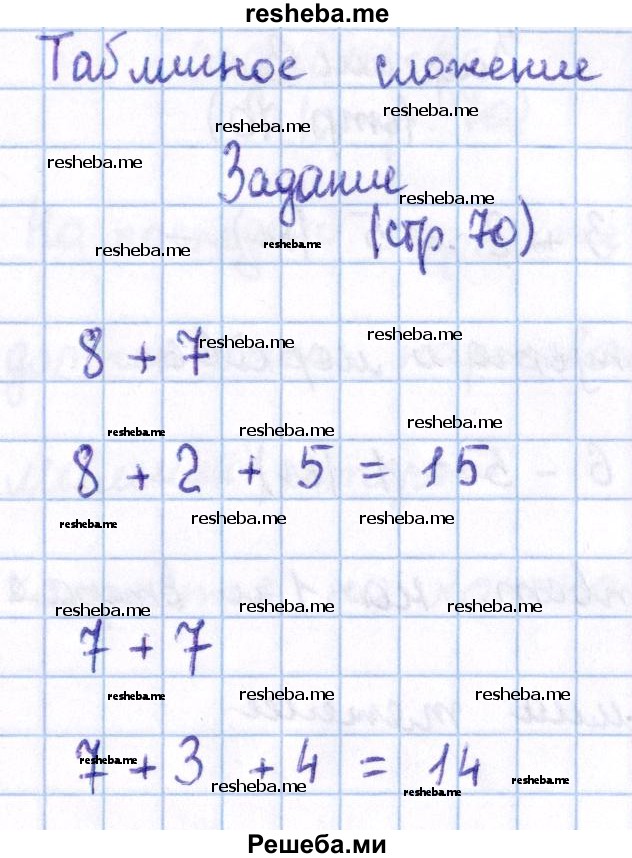 resheba.me
Табличное сложение
resheba.me
resheba.me
resheba.me
Задание
resheba.me
(стр. 70)
resheba.me
resheba.me
8 + 7
resheba.me
resheba.me
resheba.me
resheba.me
resheba.me
8 + 2 + 5 = 15
resheba.me
resheba.me
resheba.me
resheba.me
resheba.me
resheba.me
7 + 7
resheba.me
resheba.me
resheba.me
7 + 3 + 4 = 14
resheba.me
resheba.me
resheba.me
resheba.me
Решеба.ми